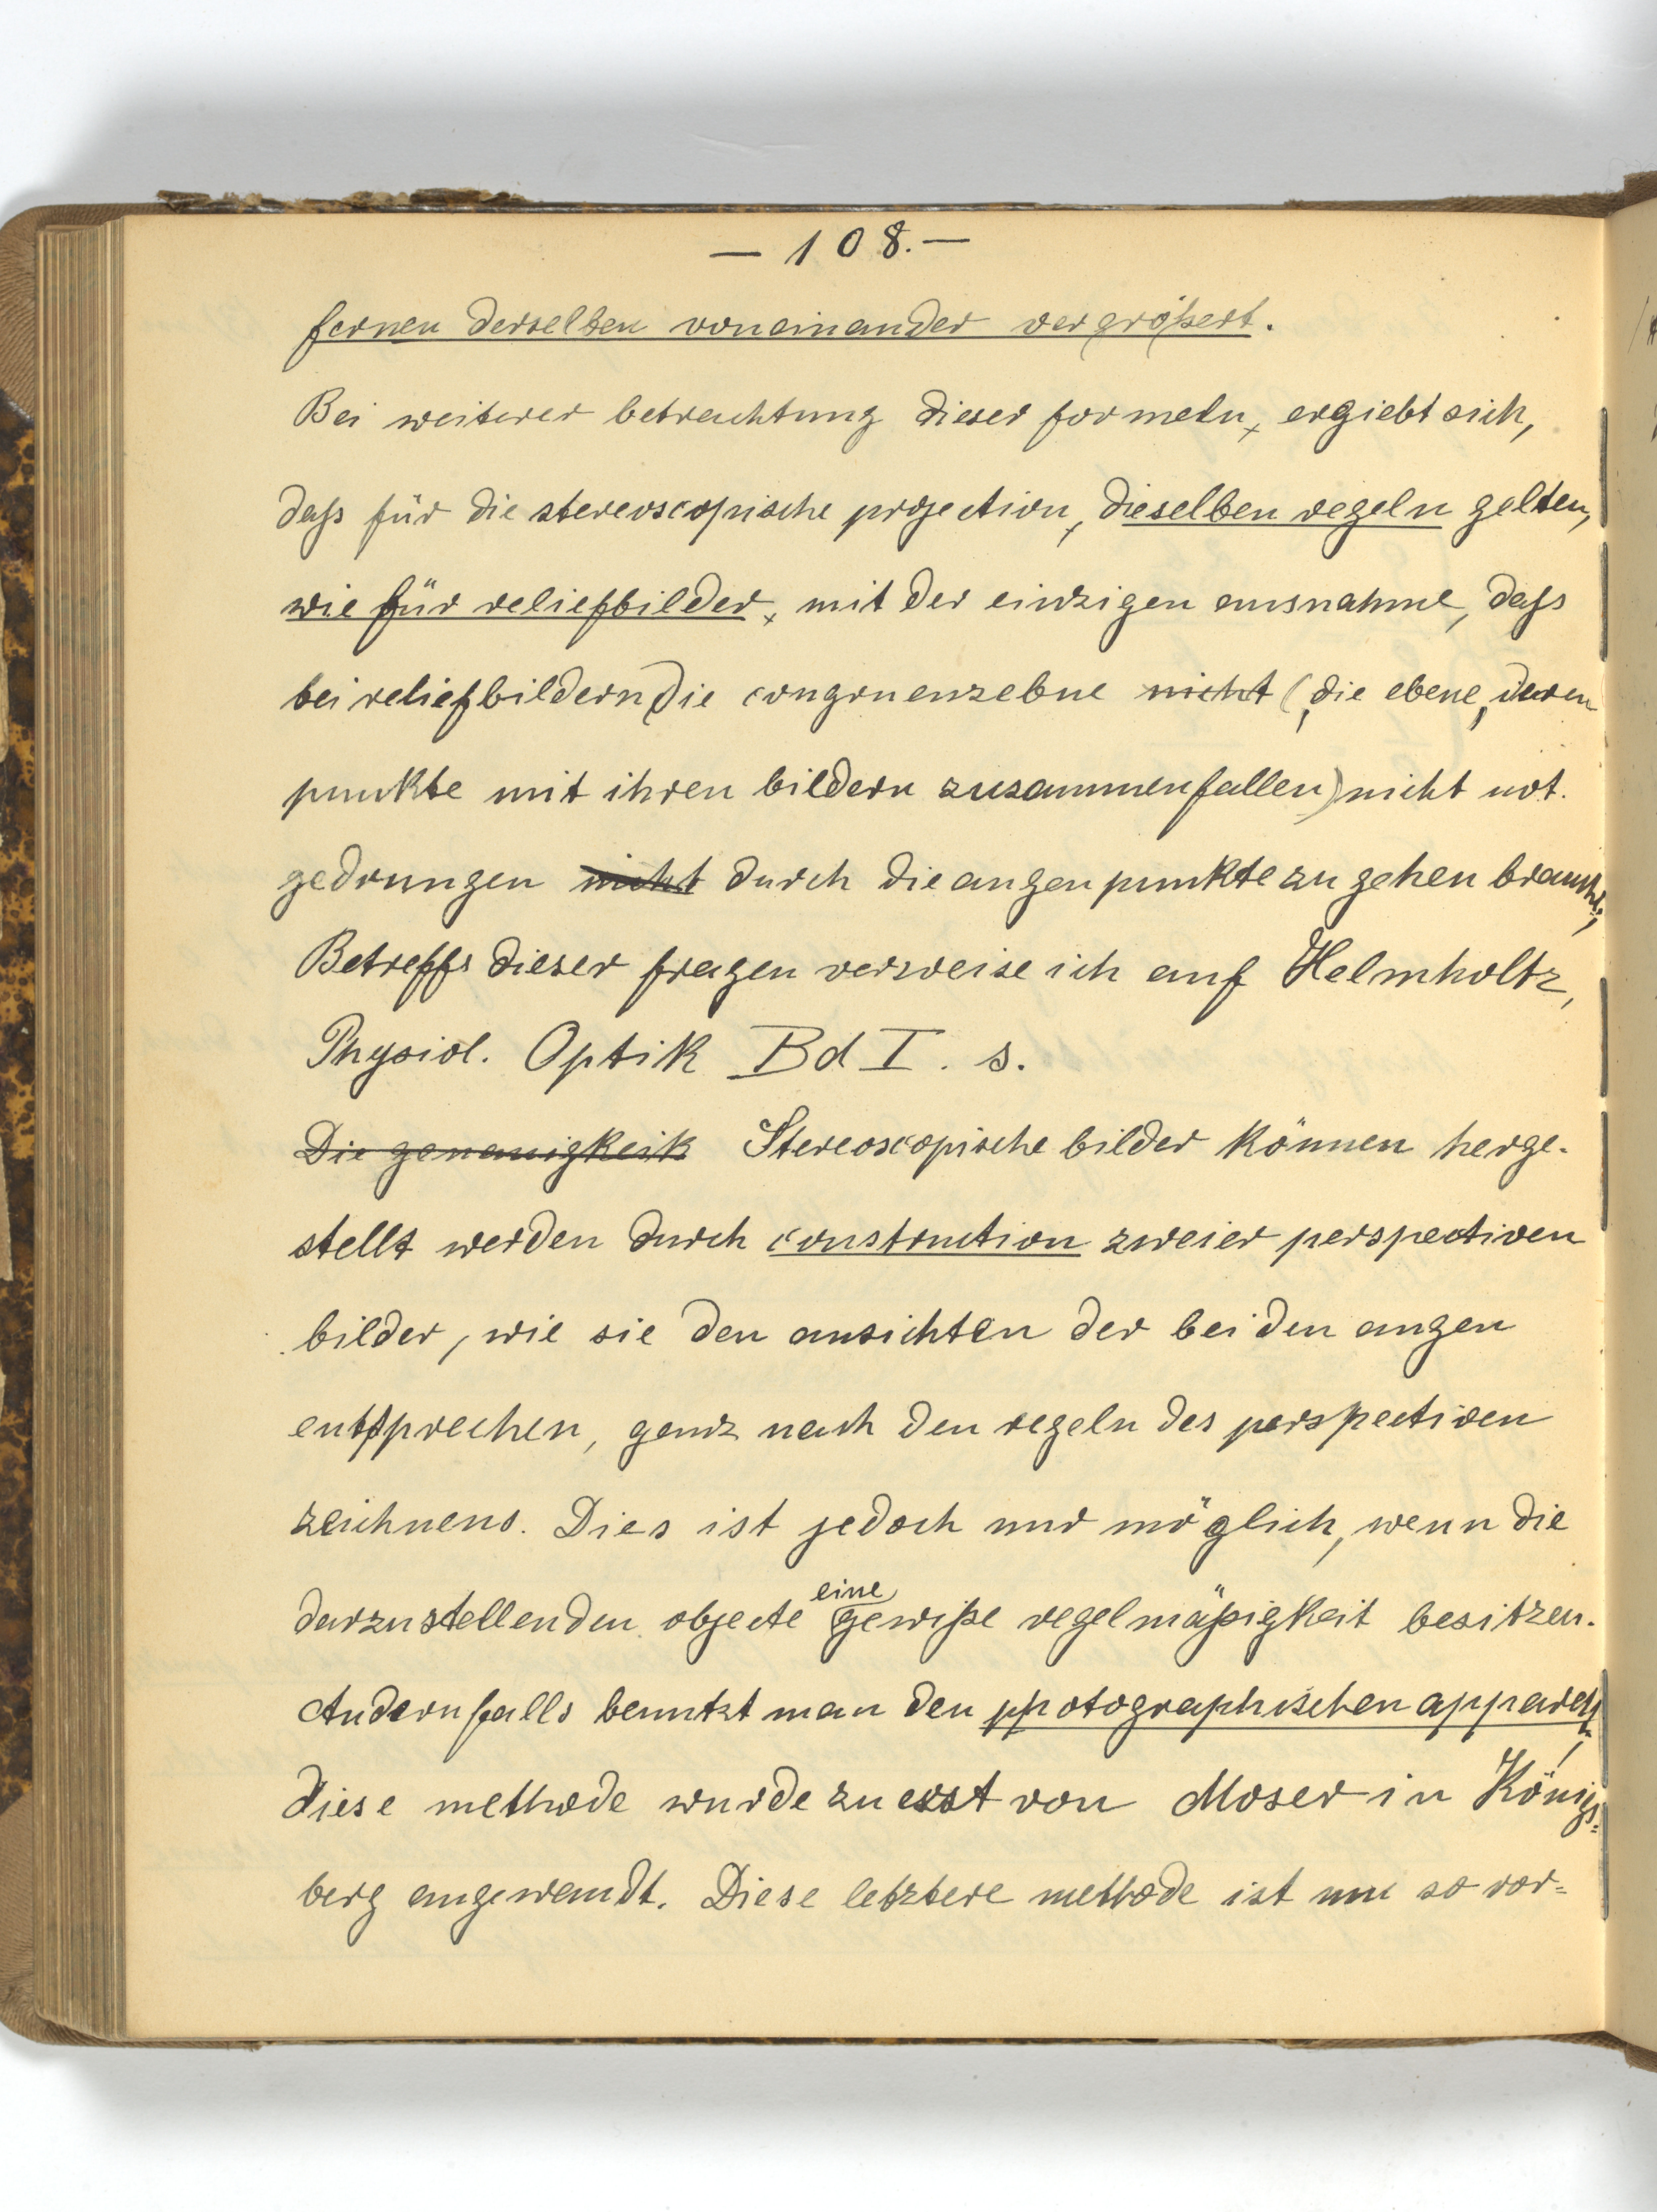 — 108. —
fernen derselben voneinander vergrößert.
Bei weiterer betrachtung dieser formeln, ergiebt sich,
daß für die stereoscopische projection, dieselben regeln gelten,
wie für reliefbilder, mit der einzigen ausnahme, daß
bei reliefbildern die congruenzebne nicht (die ebene, deren
punkte mit ihren bildern zusammenfallen) nicht not-
gedrungen nicht durch die augenpunkte zu gehen braucht.
Betreffs dieser fragen verweise ich auf Helmholtz,
Physiol. Optik Bd I. s.
Die genauigkeit Stereoscopische bilder können herge-
stellt werden durch construction zweier perspectiven
bilder, wie sie den ansichten der beiden augen
entsprechen, ganz nach den regeln des perspectiven
zeichnens. Dies ist jedoch nur möglich, wenn die
darzustellenden objecte eine gewiße regelmäßigkeit besitzen.
Andernfalls benutzt man den photographischen apparat,
diese methode wurde zuerst von Moser in Königs-
berg angewandt. Diese letztere methode ist um so vor=